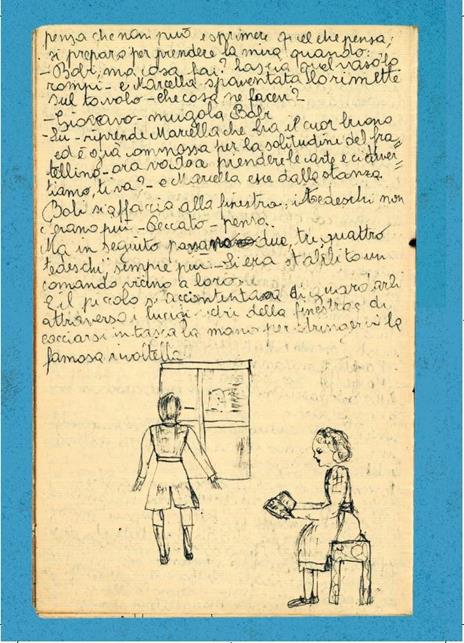 pensa che non può esprimere quel che pensa,
si prepara per prendere la mira quando:
- Bobi, ma cosa fai? lascia quel vaso lo
rompi - e Marcella spaventata lo rimette
sul tavolo - che cosa ne facevi? -
- Giocavo - mugola Bobi
- Su - riprende Marcella che ha il cuor buono
ed è già commossa per la solitudine del fra=
tellino - ora vado a prendere le carte e ci diver=
tiamo, ti va? - e Marcella esce dalla stanza.
Bobi si affaccia alla finestra; i tedeschi non
c'erano più - Peccato - pensa.
Ma in seguito passano due, tre, quattro
tedeschi, sempre più - Si era stabilito un
comando vicino a loro.
E il piccolo si accontentava di guardarli
attraverso i lucidi vetri della finestra e di
cacciarsi in tasca la mano per stringervi la
famosa rivoltella